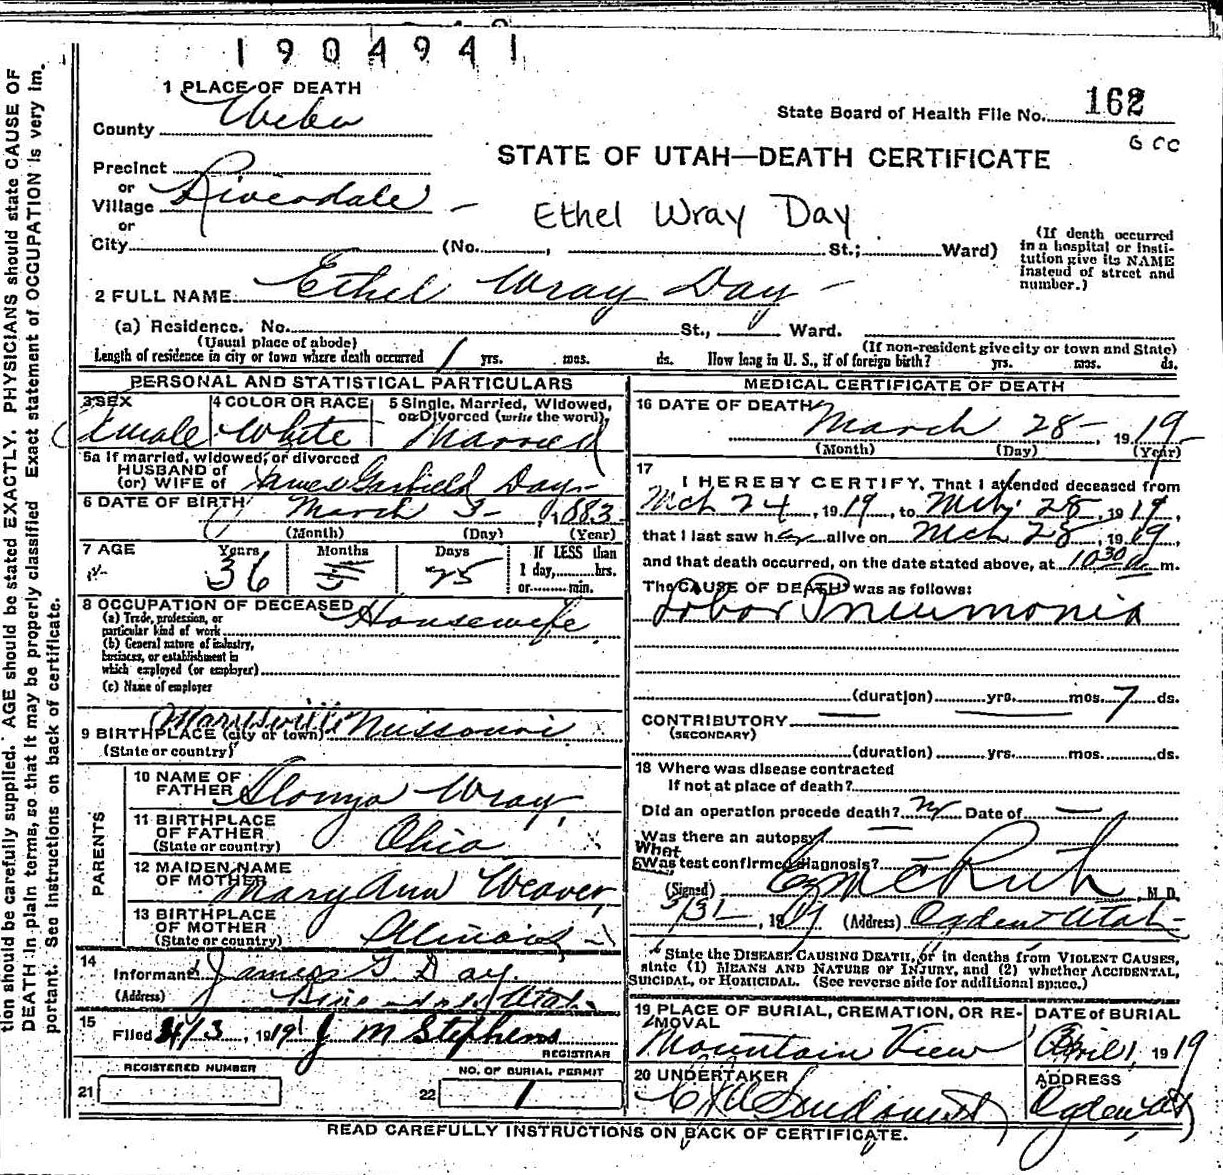 1904941
1 PLACE OF DEATH
County Weber
State Board of Health File No. 162
STATE OF UTAH—DEATH CERTIFICATE
Precinct
or
Village Riverdale
or
Ethel Wray Day
City (No. , St.; Ward)
(If death occurred
in a hospital or insti-
tution give its NAME
instead of street and
number.)
2 FULL NAME Ethel Wray Day
(a) Residence. No. St., Ward.
(Usual place of abode)
(If non-resident give city or town and State)
Length of residence in city or town where death occurred 1 yrs. mos. ds. How long in U. S., if of foreign birth? yrs. mos. ds.
PERSONAL AND STATISTICAL PARTICULARS
3 SEX Female
4 COLOR OR RACE White
5 Single, Married, Widowed,
or Divorced (write the word),
Married
5a If married, widowed, or divorced
HUSBAND of
(or) WIFE of James Garfield Day
6 DATE OF BIRTH March 3 , 1883
(Month) (Day) (Year)
7 AGE Years Months Days
36 25
If LESS than
1 day, hrs.
or min.
8 OCCUPATION OF DECEASED Housewife
(a) Trade, profession, or
particular kind of work
(b) General nature of industry,
business, or establishment in
which employed (or employer)
(c) Name of employer
9 BIRTHPLACE (city or town) Marysville Missouri
(State or country)
PARENTS
10 NAME OF
FATHER Alonzo Wray
11 BIRTHPLACE
OF FATHER
(State or country) Ohio
12 MAIDEN NAME
OF MOTHER Mary Ann Weaver
13 BIRTHPLACE
OF MOTHER
(State or country) Illinois
14
Informant James G Day
(Address) Riverdale Utah
15
Filed 4/3, 1919 J M Stephens
REGISTRAR
21 REGISTERED NUMBER
22 NO. OF BURIAL PERMIT
1
MEDICAL CERTIFICATE OF DEATH
16 DATE OF DEATH
March 28 , 1919
(Month) (Day) (Year)
17
I HEREBY CERTIFY, That I attended deceased from
Mch 24 , 1919, to Mch 28, 1919,
that I last saw her alive on Mch 28, 1919,
and that death occurred, on the date stated above, at 10 30 a m.
The CAUSE OF DEATH was as follows:
Lobar Pneumonia
(duration) yrs. mos. 7 ds.
CONTRIBUTORY
(SECONDARY)
(duration) yrs. mos. ds.
18 Where was disease contracted
If not at place of death?
Did an operation precede death? no Date of —
Was there an autopsy
What
test confirmed diagnosis? —
(Signed) , M. D.
3/31 , 1919 (Address) Ogden Utah
State the DISEASE CAUSING DEATH, or in deaths from VIOLENT CAUSES,
state (1) MEANS AND NATURE OF INJURY, and (2) whether ACCIDENTAL,
SUICIDAL, or HOMICIDAL. (See reverse side for additional space.)
19 PLACE OF BURIAL, CREMATION, OR RE-
MOVAL
Mountain View
DATE of BURIAL
April 1, 1919
20 UNDERTAKER
ADDRESS
Ogden, Ut
READ CAREFULLY INSTRUCTIONS ON BACK OF CERTIFICATE.
tion should be carefully supplied. AGE should be stated EXACTLY. PHYSICIANS should state CAUSE OF
DEATH in plain terms, so that it may be properly classified. Exact statement of OCCUPATION is very im-
portant. See instructions on back of certificate.